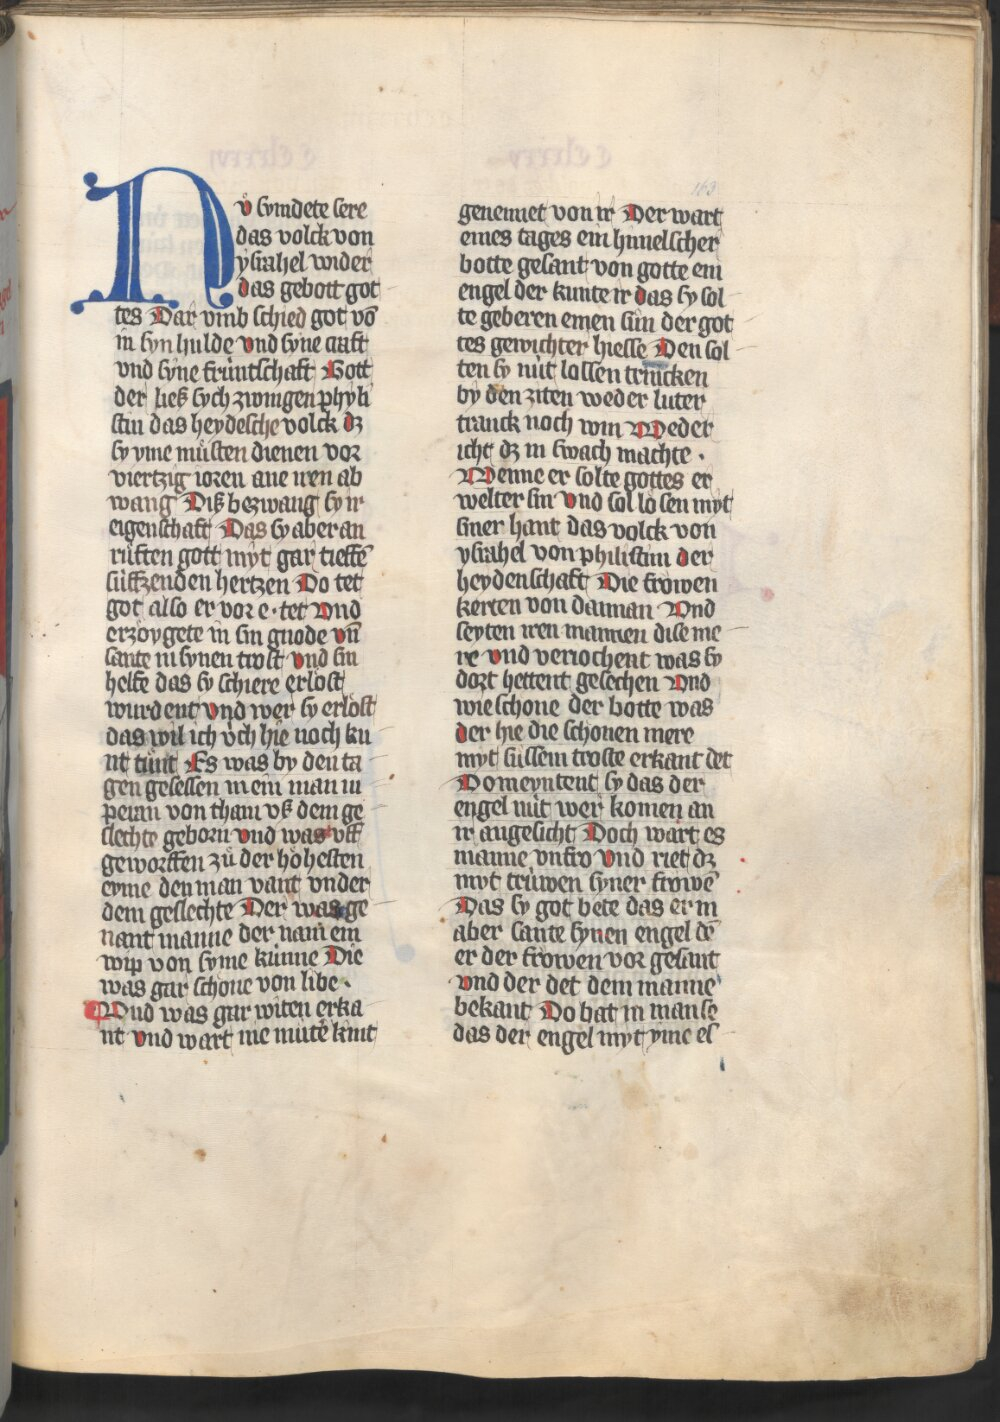 163
Nů sundete sere
das volck von
ysrahel wider
das gebott got
tes Dar vmb schied got vō
in syn hulde vnd syne craft
vnd syne früntschaft Gott
der ließ sych zwingen phyli
stin das heydesche volck dz
sy yme můsten dienen vor
viertzig ioren ane iren ab
wang Diß bezwang sy ir
eigenschaft Das sy aber an
rüften gott myt gar tieffē
süffzenden hertzen Do tet
got also er vor e tet Vnd
erzöygete in sin gnode vn̄
sante in synen trost vnd sin
helfe das sy schiere erlost
wurdent vnd wer sy erlöst
das wil ich üch hie noch ku
nt tůnt Es was by den ta
gen gesessen in ein man in
peran von tham vß dem ge
slechte geborn vnd was vff
geworffen zů der höhesten
eyme den man vant vnder
dem geslechte Der was ge
nant manne der nam ein
wip von syme künne Die
was gar schone von libe ·
Vnd was gar witen erka
nt vnd wart nie mūtē kint
genennet von ir Der wart
eines tages ein himelscher
botte gesant von gotte ein
engel der kunte ir das sy sol
te geberen einen sun der got
tes gewichter hiesse Den sol
ten sy nüt lossen trincken
by den ziten weder luter
tranck noch win Weder
icht dz in swach machte ·
Wenne er solte gottes er
welter sin Vnd sol losen myt
siner hant das volck von
ysrahel von philistim der
heydenschaft Die frowen
kerten von damnan Vnd
seyten iren mannen dise me
re vnd veriochent was sy
dort hettent gesechen Vnd
wie schone der botte was
der hie die schonen mere
myt süssem troste erkant det
Do meyntent sy das der
engel nüt wer komen an
ir angesicht Doch wart es
manne vnfro vnd riet dz
myt trüwen syner frowē
Das sy got bete das er in
aber sante synen engel dē
er der frowen vor gesant
vnd der det dem manne
bekant Do bat in manse
das der engel myt yme es